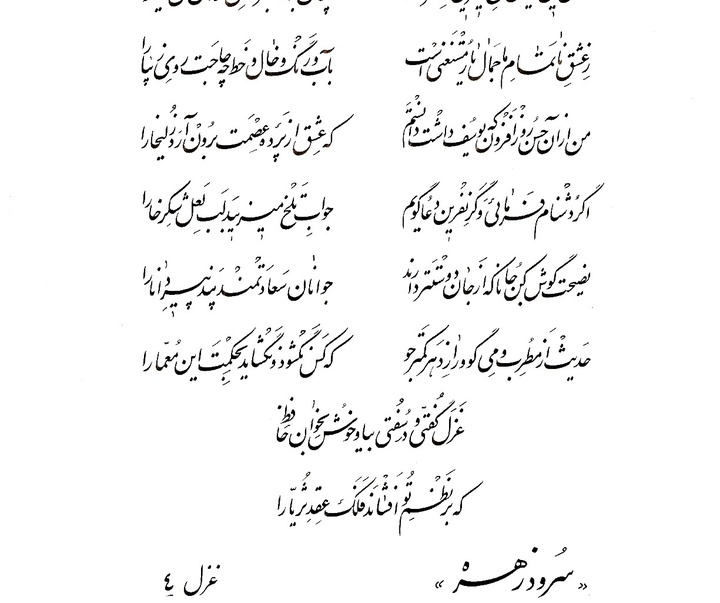 ز عشق ناتمام ما جمال یار مستغنی است به آب و رنگ و خال و خط چه حاجت روی زیبا را
من از آن حسن روزافزون که یوسف داشت دانستم که عشق از پرده عصمت برون آرد زلیخا را
اگر دشنام فرمائی و گر نفرین دعا گویم جواب تلخ می‌زیبد لب لعل شکرخا را
نصیحت گوش کن جانا که از جان دوستتر دارند جوانان سعادتمند پند پیر دانا را
حدیث از مطرب و می گو و راز دهر کمتر جو که کس نگشود و نگشاید بحکمت این معما را
غزل گفتی و در سفتی بیا و خوش بخوان حافظ
که بر نظم تو افشاند فلک عقد ثریا را
« سرود زهره » غزل ٤